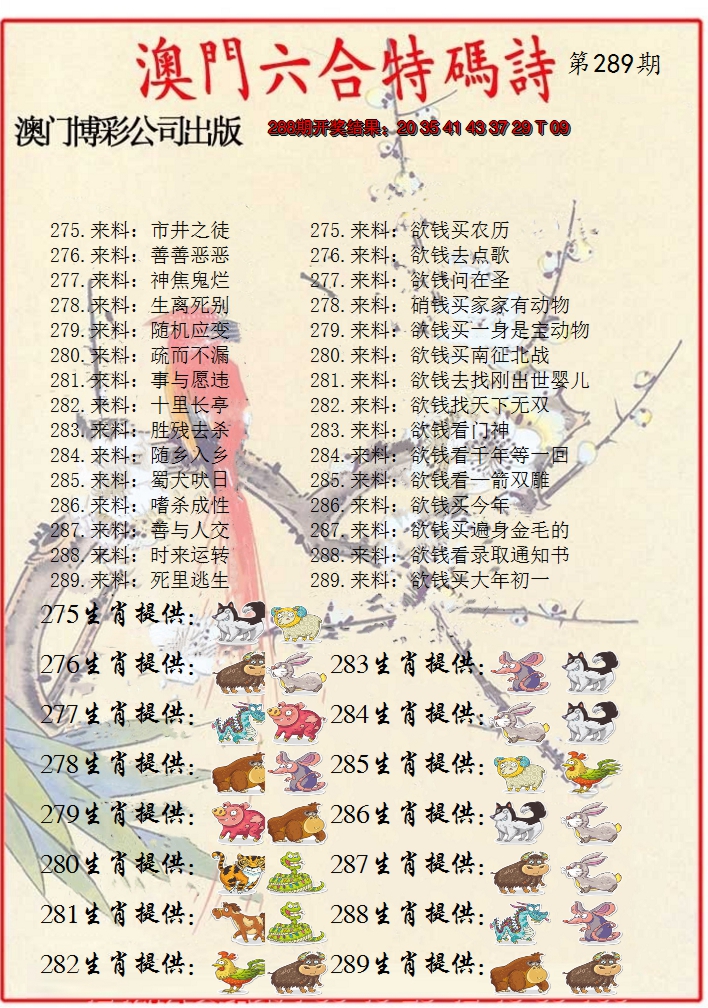 澳門六合特碼詩 第289期
澳门博彩公司出版 288期开奖结果：20 35 41 43 37 29 T 09
275.来料：市井之徒 275.来料：欲钱买农历
276.来料：善善恶恶 276.来料：欲钱去点歌
277.来料：神焦鬼烂 277.来料：欲钱问在圣
278.来料：生离死别 278.来料：硝钱买家家有动物
279.来料：随机应变 279.来料：欲钱买一身是宝动物
280.来料：疏而不漏 280.来料：欲钱买南征北战
281.来料：事与愿违 281.来料：欲钱去找刚出世婴儿
282.来料：十里长亭 282.来料：欲钱找天下无双
283.来料：胜残去杀 283.来料：欲钱看门神
284.来料：随乡入乡 284.来料：欲钱看千年等一回
285.来料：蜀犬吠日 285.来料：欲钱看一箭双雕
286.来料：嗜杀成性 286.来料：欲钱买今年
287.来料：善与人交 287.来料：欲钱买遍身金毛的
288.来料：时来运转 288.来料：欲钱看录取通知书
289.来料：死里逃生 289.来料：欲钱买大年初一
275生肖提供：
276生肖提供： 283生肖提供：
277生肖提供： 284生肖提供：
278生肖提供： 285生肖提供：
279生肖提供： 286生肖提供：
280生肖提供： 287生肖提供：
281生肖提供： 288生肖提供：
282生肖提供： 289生肖提供：